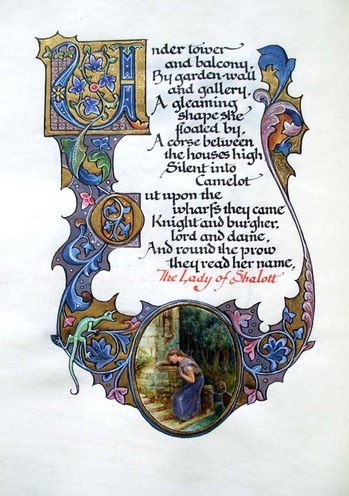 Under tower
and balcony,
By garden-wall
and gallery,
A gleaming
shape she
floated by,
A corse between
the houses high
Silent into
Camelot
Out upon the
wharfs they came
Knight and burgher,
lord and dame,
And round the prow
they read her name,
The Lady of Shalott